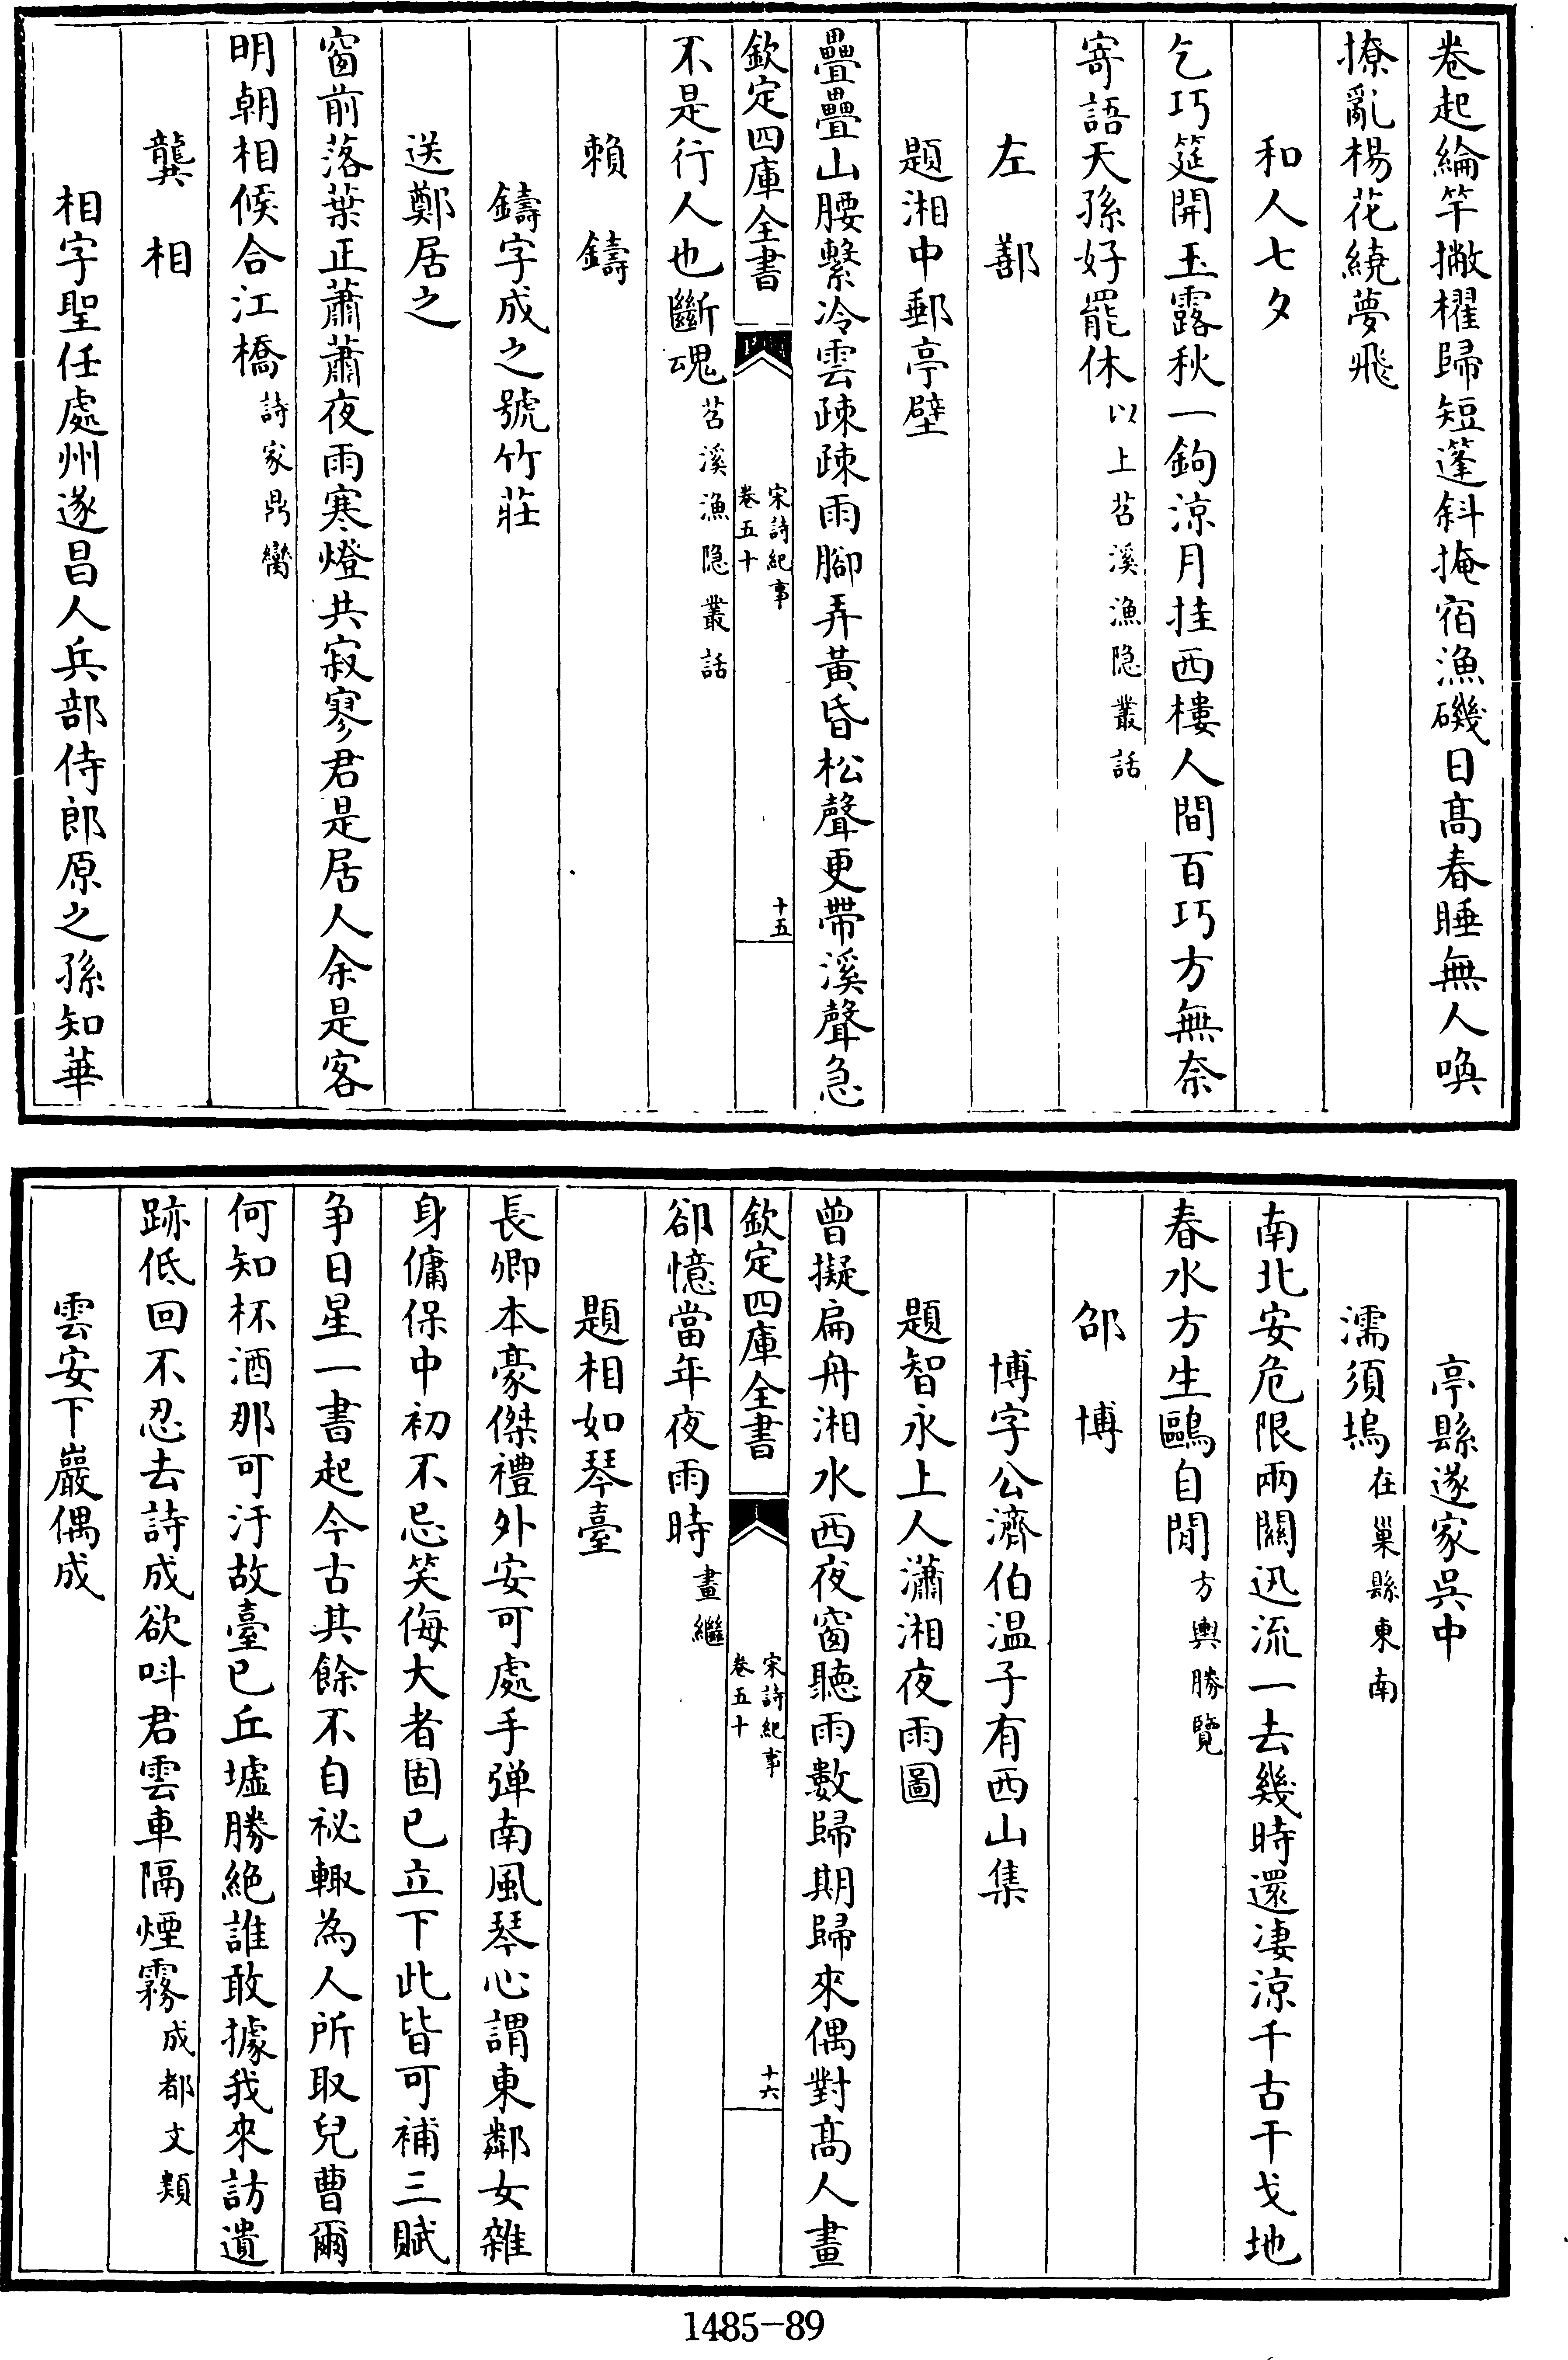 卷起綸竿撇櫂歸短蓬斜掩宿漁磯日髙春睡無人喚
撩亂楊花繞夢飛
和人七夕
乞巧筵開玉露秋一鉤涼月挂西樓人間百巧方無奈
寄語天孫好罷休以上苕溪漁隐叢話
左鄯
題湘中郵亭壁
疊疊山腰繫冷雲疎疎雨腳弄黃昏松聲更帶溪聲急
欽定四庫全書
宋詩紀事
卷五十
十五
不是行人也斷魂苕溪漁隐叢話
賴鑄
鑄字成之號竹莊
送鄭居之
窗前落葉正蕭蕭夜雨寒燈共寂寥君是居人余是客
明朝相候合江橋詩家鼎臠
龔相
相字聖任處州遂昌人兵部侍郎原之孫知華
亭縣遂家吳中
濡須塢在巢縣東南
南北安危限兩關迅流一去幾時還淒涼千古干戈地
春水方生鷗自閒方輿勝覽
邵博
博字公濟伯温子有西山集
題智永上人瀟湘夜雨圖
曾擬扁舟湘水西夜窗聽雨數歸期歸來偶對髙人畫
欽定四庫全書
宋詩紀事
卷五十
十六
卻憶當年夜雨時畫繼
題相如琴臺
長卿本豪傑禮外安可處手弹南風琴心謂東鄰女雜
身傭保中初不忌笑侮大者固已立下此皆可補三賦
争日星一書起今古其餘不自祕輙為人所取兒曹爾
何知杯酒那可汙故臺已丘墟勝絶誰敢據我來訪遺
跡低回不忍去詩成欲呌君雲車隔煙霧成都文類
雲安下巖偶成
1485-89